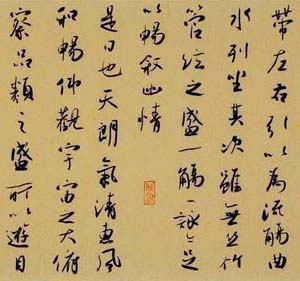 帶左右引以為流觴曲
水列坐其次雖無絲竹
管絃之盛一觴一詠亦足
以暢敘幽情
是日也天朗氣清惠風
和暢仰觀宇宙之大俯
察品類之盛所以遊目